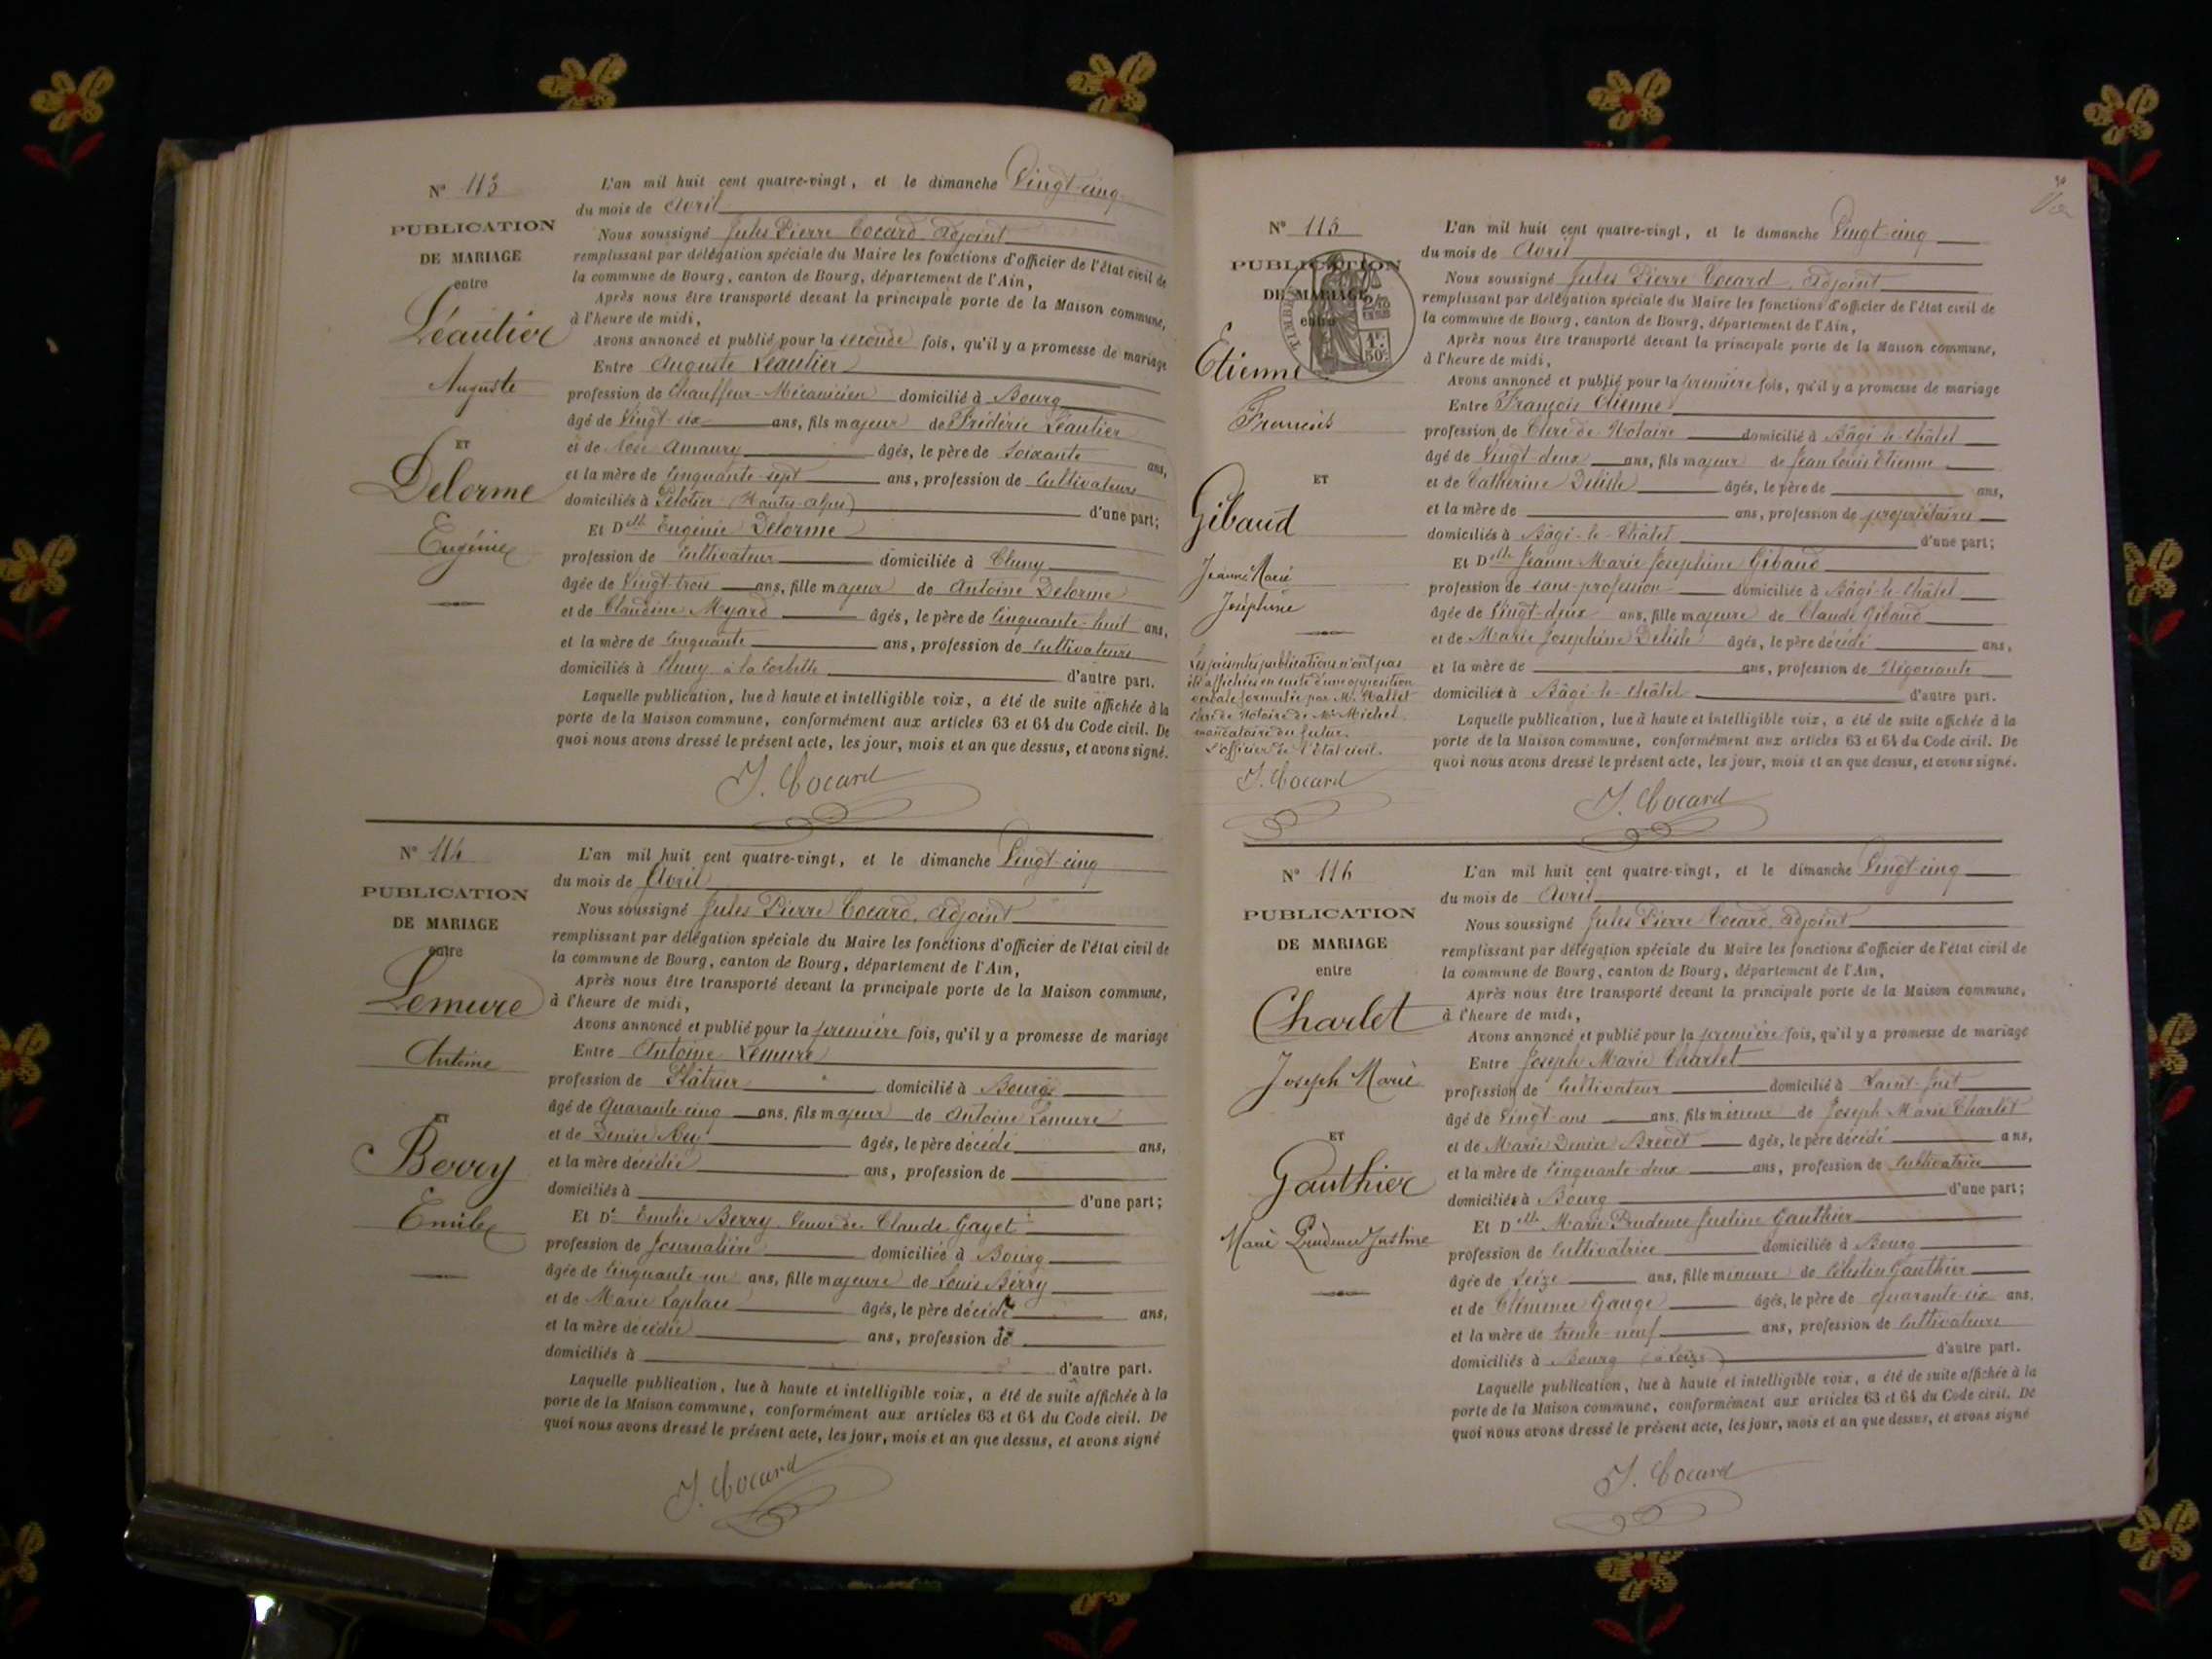 N° 113
PUBLICATION
DE MARIAGE
entre
Léautier
Auguste
ET
Delorme
Eugénie
L'an mil huit cent quatre-vingt, et le dimanche Vingt-cinq
du mois de Avril
Nous soussigné Jules Pierre Cocard, Adjoint
remplissant par délégation spéciale du Maire les fonctions d'officier de l'état civil de
la commune de Bourg, canton de Bourg, département de l'Ain,
Après nous être transporté devant la principale porte de la Maison commune,
à l'heure de midi,
Avons annoncé et publié pour la seconde fois, qu'il y a promesse de mariage
Entre Auguste Léautier
profession de Chauffeur-Mécanicien domicilié à Bourg
âgé de Vingt-six ans, fils majeur de Frédéric Léautier
et de Amaury âgés, le père de Soixante ans,
et la mère de Cinquante-sept ans, profession de Cultivateurs
domiciliés à (Hautes-Alpes) d'une part;
Et Delle Eugénie Delorme
profession de Cultivateur domiciliée à Cluny
âgée de Vingt-trois ans, fille majeur de Antoine Delorme
et de Claudine Myard âgés, le père de Cinquante-huit ans,
et la mère de Cinquante ans, profession de Cultivateurs
domiciliés à Cluny à la d'autre part.
Laquelle publication, lue à haute et intelligible voix, a été de suite affichée à la
porte de la Maison commune, conformément aux articles 63 et 64 du Code civil. De
quoi nous avons dressé le présent acte, les jour, mois et an que dessus, et avons signé.
J. Cocard
N° 114
PUBLICATION
DE MARIAGE
entre
Lemure
Antoine
ET
Berry
Emilie
L'an mil huit cent quatre-vingt, et le dimanche Vingt-cinq
du mois de Avril
Nous soussigné Jules Pierre Cocard, Adjoint
remplissant par délégation spéciale du Maire les fonctions d'officier de l'état civil de
la commune de Bourg, canton de Bourg, département de l'Ain,
Après nous être transporté devant la principale porte de la Maison commune,
à l'heure de midi,
Avons annoncé et publié pour la première fois, qu'il y a promesse de mariage
Entre Antoine Lemure
profession de Plâtrier domicilié à Bourg
âgé de Quarante-cinq ans, fils majeur de Antoine Lemure
et de Denise Rey âgés, le père décédé ans,
et la mère décédée ans, profession de
domiciliés à d'une part;
Et De Emilie Berry, Veuve de Claude Gayet
profession de Journalière domiciliée à Bourg
âgée de Cinquante-un ans, fille majeure de Louis Berry
et de Marie Laplace âgés, le père décédé ans,
et la mère décédée ans, profession de
domiciliés à d'autre part.
Laquelle publication, lue à haute et intelligible voix, a été de suite affichée à la
porte de la Maison commune, conformément aux articles 63 et 64 du Code civil. De
quoi nous avons dressé le présent acte, les jour, mois et an que dessus, et avons signé
J. Cocard
N° 115
PUBLICATION
DE MARIAGE
entre
TIMBRE
1F.
50C.
Etienne
François
ET
Gibaud
Jeanne Marie
Joséphine
Les présentes publications n'ont pas
été affichées en suite d'une opposition
verbale formulée par Mr
Clerc de Notaire de Me Michel
mandataire du futur.
L'officier de l'état civil.
J. Cocard
L'an mil huit cent quatre-vingt, et le dimanche Vingt-cinq
du mois de Avril
Nous soussigné Jules Pierre Cocard, Adjoint
remplissant par délégation spéciale du Maire les fonctions d'officier de l'état civil de
la commune de Bourg, canton de Bourg, département de l'Ain,
Après nous être transporté devant la principale porte de la Maison commune,
à l'heure de midi,
Avons annoncé et publié pour la première fois, qu'il y a promesse de mariage
Entre François Etienne
profession de Clerc de Notaire domicilié à Bâgé-le-Châtel
âgé de Vingt-deux ans, fils majeur de Jean Louis Etienne
et de Catherine Delisle âgés, le père de ans,
et la mère de ans, profession de propriétaires
domiciliés à Bâgé-le-Châtel d'une part;
Et Delle Jeanne Marie Joséphine Gibaud
profession de sans profession domiciliée à Bâgé-le-Châtel
âgée de Vingt-deux ans, fille majeure de Claude Gibaud
et de Marie Joséphine Delisle âgés, le père décédé ans,
et la mère de ans, profession de Négociante
domiciliée à Bâgé-le-Châtel d'autre part.
Laquelle publication, lue à haute et intelligible voix, a été de suite affichée à la
porte de la Maison commune, conformément aux articles 63 et 64 du Code civil. De
quoi nous avons dressé le présent acte, les jour, mois et an que dessus, et avons signé.
J. Cocard
N° 116
PUBLICATION
DE MARIAGE
entre
Charlet
Joseph Marie
ET
Gauthier
Marie Prudence Justine
L'an mil huit cent quatre-vingt, et le dimanche Vingt-cinq
du mois de Avril
Nous soussigné Jules Pierre Cocard, Adjoint
remplissant par délégation spéciale du Maire les fonctions d'officier de l'état civil de
la commune de Bourg, canton de Bourg, département de l'Ain,
Après nous être transporté devant la principale porte de la Maison commune,
à l'heure de midi,
Avons annoncé et publié pour la première fois, qu'il y a promesse de mariage
Entre Joseph Marie Charlet
profession de Cultivateur domicilié à Saint-Just
âgé de Vingt ans ans, fils mineur de Joseph Marie Charlet
et de Marie Denise Brevet âgés, le père décédé ans,
et la mère de Cinquante-deux ans, profession de Cultivatrice
domiciliée à Bourg d'une part;
Et Delle Marie Prudence Justine Gauthier
profession de Cultivatrice domiciliée à Bourg
âgée de Seize ans, fille mineure de Célestin Gauthier
et de Clémence Gauge âgés, le père de quarante-six ans.
et la mère de trente-neuf ans, profession de Cultivateurs
domiciliés à Bourg d'autre part.
Laquelle publication, lue à haute et intelligible voix, a été de suite affichée à la
porte de la Maison commune, conformément aux articles 63 et 64 du Code civil. De
quoi nous avons dressé le présent acte, les jour, mois et an que dessus, et avons signé
J. Cocard